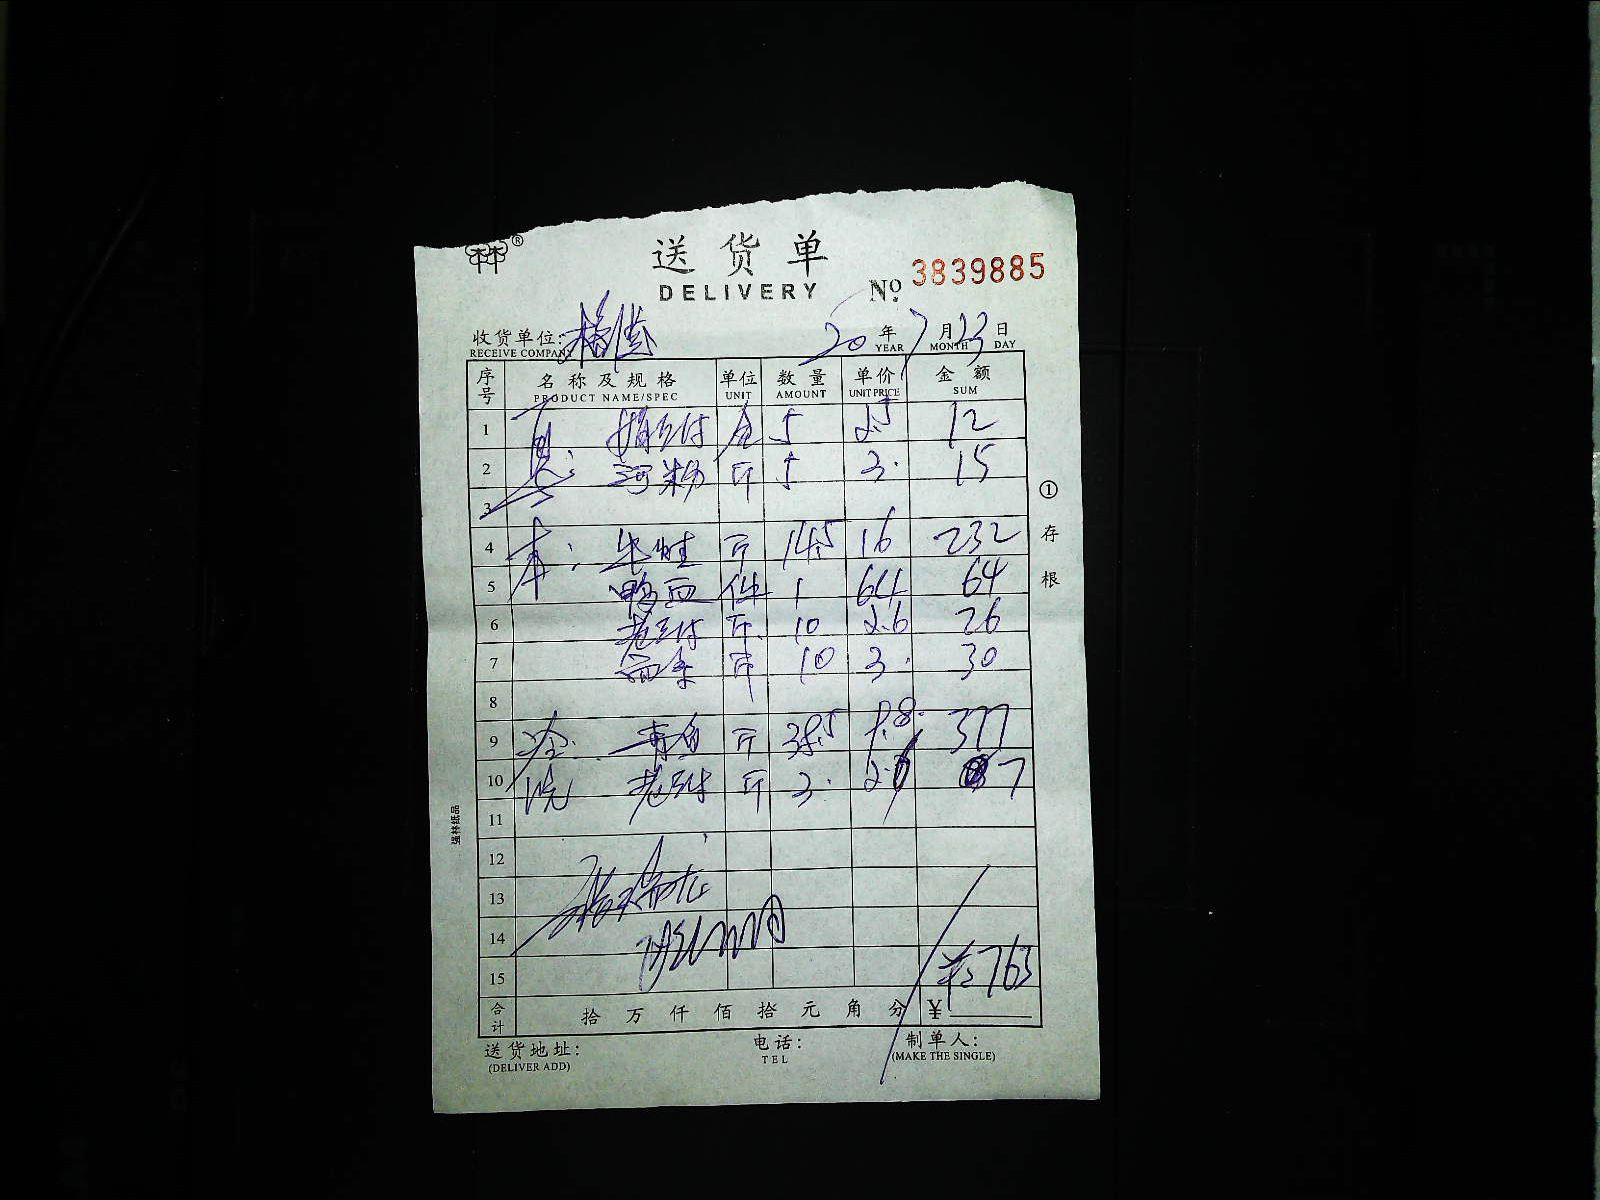 林林®
送货单
DELIVERY
№ 3839885
收货单位:
RECEIVE COMPANY
20 年 7 月 23 日
YEAR MONTH DAY
序号 名称及规格 单位 数量 单价 金额
PRODUCT NAME/SPEC UNIT AMOUNT UNIT PRICE SUM
1 5 2.5 12
2 河粉 斤 5 3. 15
3
4 斤 14.5 16 232
5 鸭血 件 1 64 64
6 老豆付 斤 10 2.6 26
7 斤 10 3. 30
8
9 青鱼 斤 38.5 9.8 377
10 老豆付 斤 3. 2.6 7
11
12
13
14
15
¥:763
合计 拾 万 仟 佰 拾 元 角 分 ¥
送货地址:
(DELIVER ADD)
电话:
TEL
制单人:
(MAKE THE SINGLE)
①存根
强林纸品